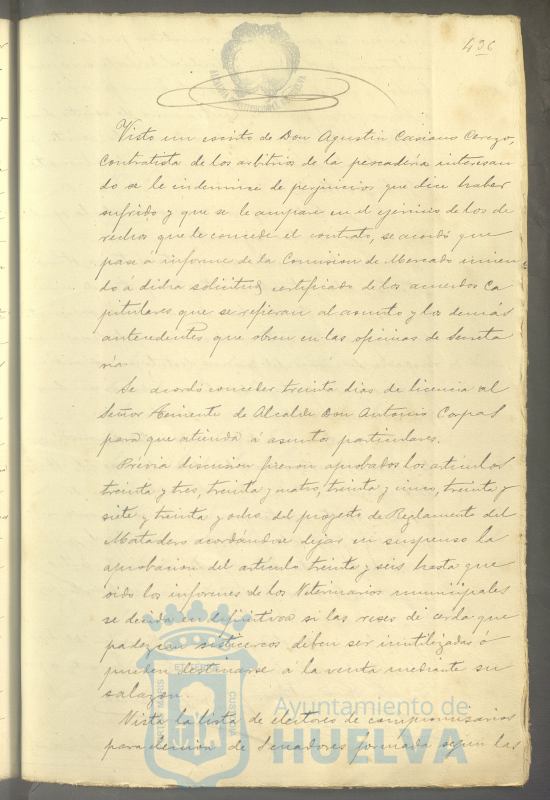 496
ALCALDIA CONSTITUCIONAL HUELVA
Visto un escrito de Don Agustin Casiano Cerezo,
contratista de los arbitrios de la pescadería interesan
do se le indemnice de perjuicios que dice haber
sufrido y que se le ampare en el ejercicio de los de
rechos que le concede el contrato, se acordó que
pase á informe de la Comision de Mercado unien
do á dicha solicitud certificado de los acuerdos ca
pitulares que se refieran al asunto y los demás
antecedentes que obren en las oficinas de Secreta
ría.
Se acordó conceder treinta dias de licencia al
Señor Teniente de Alcalde Don Antonio Corpas
para que atienda á asuntos particulares.
Previa discusion fueron aprobados los artículos
treinta y tres, treinta y cuatro, treinta y cinco, treinta y
siete y treinta y ocho del proyecto de Reglamento del
Matadero acordándose dejar en suspenso la
aprobacion del artículo treinta y seis hasta que
oido los informes de los Veterinarios municipales
se decida en definitiva si las reses de cerda que
padezcan cisticercos deben ser inutilizadas ó
pueden destinarse á la venta mediante su
salazon.
Vista la lista de electores de compromisarios
para eleccion de Senadores formada segun las
Ayuntamiento de
HUELVA